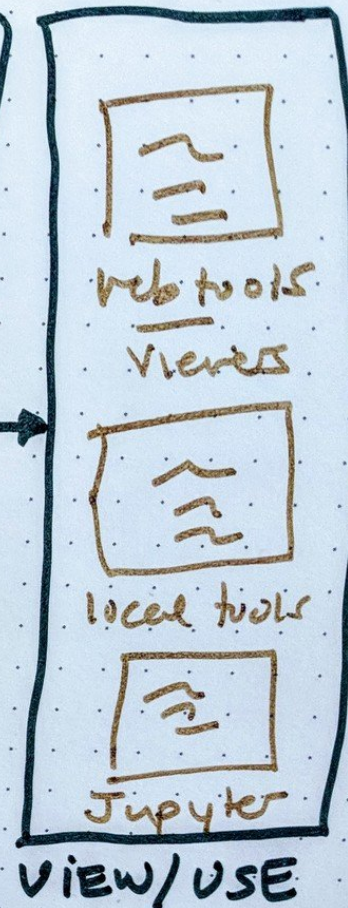 web tools
viewers
local tools
Jupyter
VIEW/USE